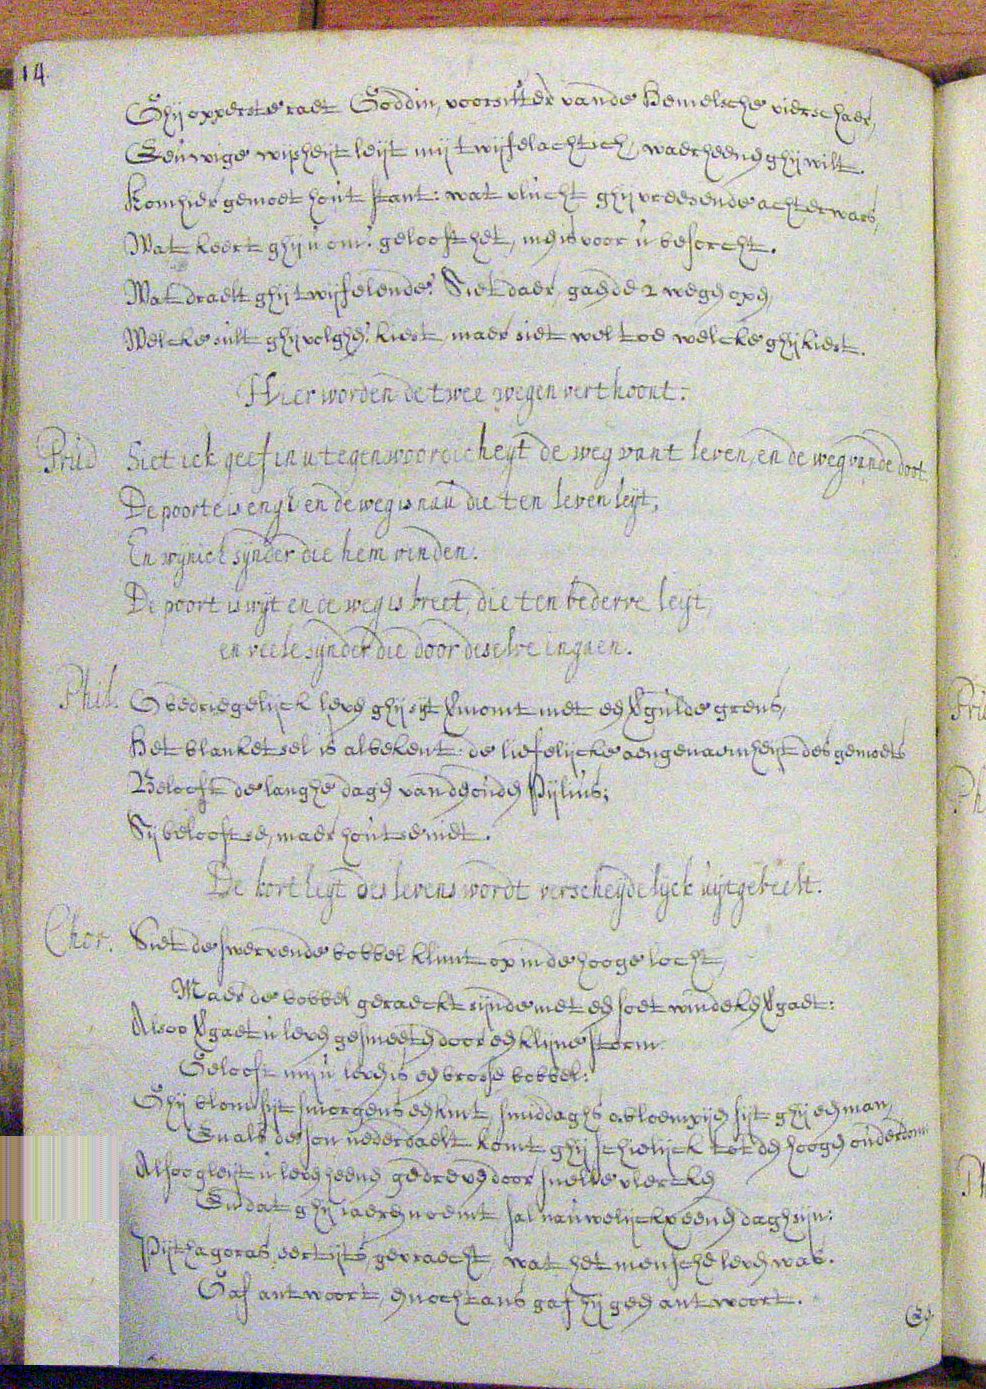 14
Ghij opperste raet Goddin, voorsitter vande Hemelsche vierschaer,
Eeuwige wijsheijt leijt mij twijfelachtich, waerheenen ghij wilt.
Kom hier gemoet hout stant: wat vlucht ghij vreesende achterwars,
Wat keert ghij u om? gelooft het, men is voor u besorcht.
Wat draelt ghij twijfelende? Siet daer, gaen de 2 wegen open,
Welcke sult ghij volghen? kiest, maer siet wel toe welcke ghij kiest.
Hier worden de twee wegen verthoont.
Prud Siet ick geef in u tegenwoordicheyt de weg vant leven, en de weg vande doot.
De poorte is engh en de weg is nau die ten leven leijt,
En wijnich sijnder die hem vinden.
De poort is wijt en de weg is breet, die ten bederve leijt,
en veele sijnder die door deselve ingaen.
Phil. O bedriegelijck leven ghij sijt vermomt met een vergulde grens,
Het blanketsel is albekent. de liefelijcke aengenaemheijt des gemoets
Belooft de langhe dagen van den ouden Pijlius;
Sij belooftse, maer hout se niet.
De kortheyt des levens wordt verscheydelijck uijtgebeelt.
Chor. Siet de swervende bobbel klimt op in de hooge locht,
Maer de bobbel geraeckt sijnde met een soet windeken vergaet:
Alsoo vergaet u leven gesmeeten door een klijne storm
Gelooft mij u leven is en brosse bobbel:
Ghij blom sijt smorgens en kint, smiddaghs abloempijen sijt ghij en man,
En als de son nederdaelt komt ghij schielijck tot den hoogen ouderdom
Alsoo gleijt u leven heenen gedreven door snelle vlercken
En dat ghij iaeren noemt sal nauwelijckx eenen dagh sijn:
Pijthagoras eertijts gevraecht, wat het menschen leven was.
Gaf antwoort, en nochtans gaf hij geen antwoort.
En